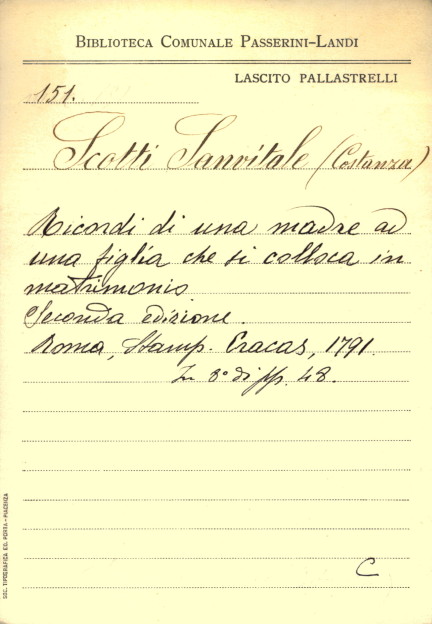 BIBLIOTECA COMUNALE PASSERINI-LANDI
LASCITO PALLASTRELLI
151.
Scotti Sanvitale (Costanza)
Ricordi di una madre ad
una figlia che si colloca in
matrimonio
Seconda edizione.
Roma, Stamp. Cracas, 1791.
In 8° di pp. 48.
C
SOC. TIPOGRAFICA ED. PORTA - PIACENZA